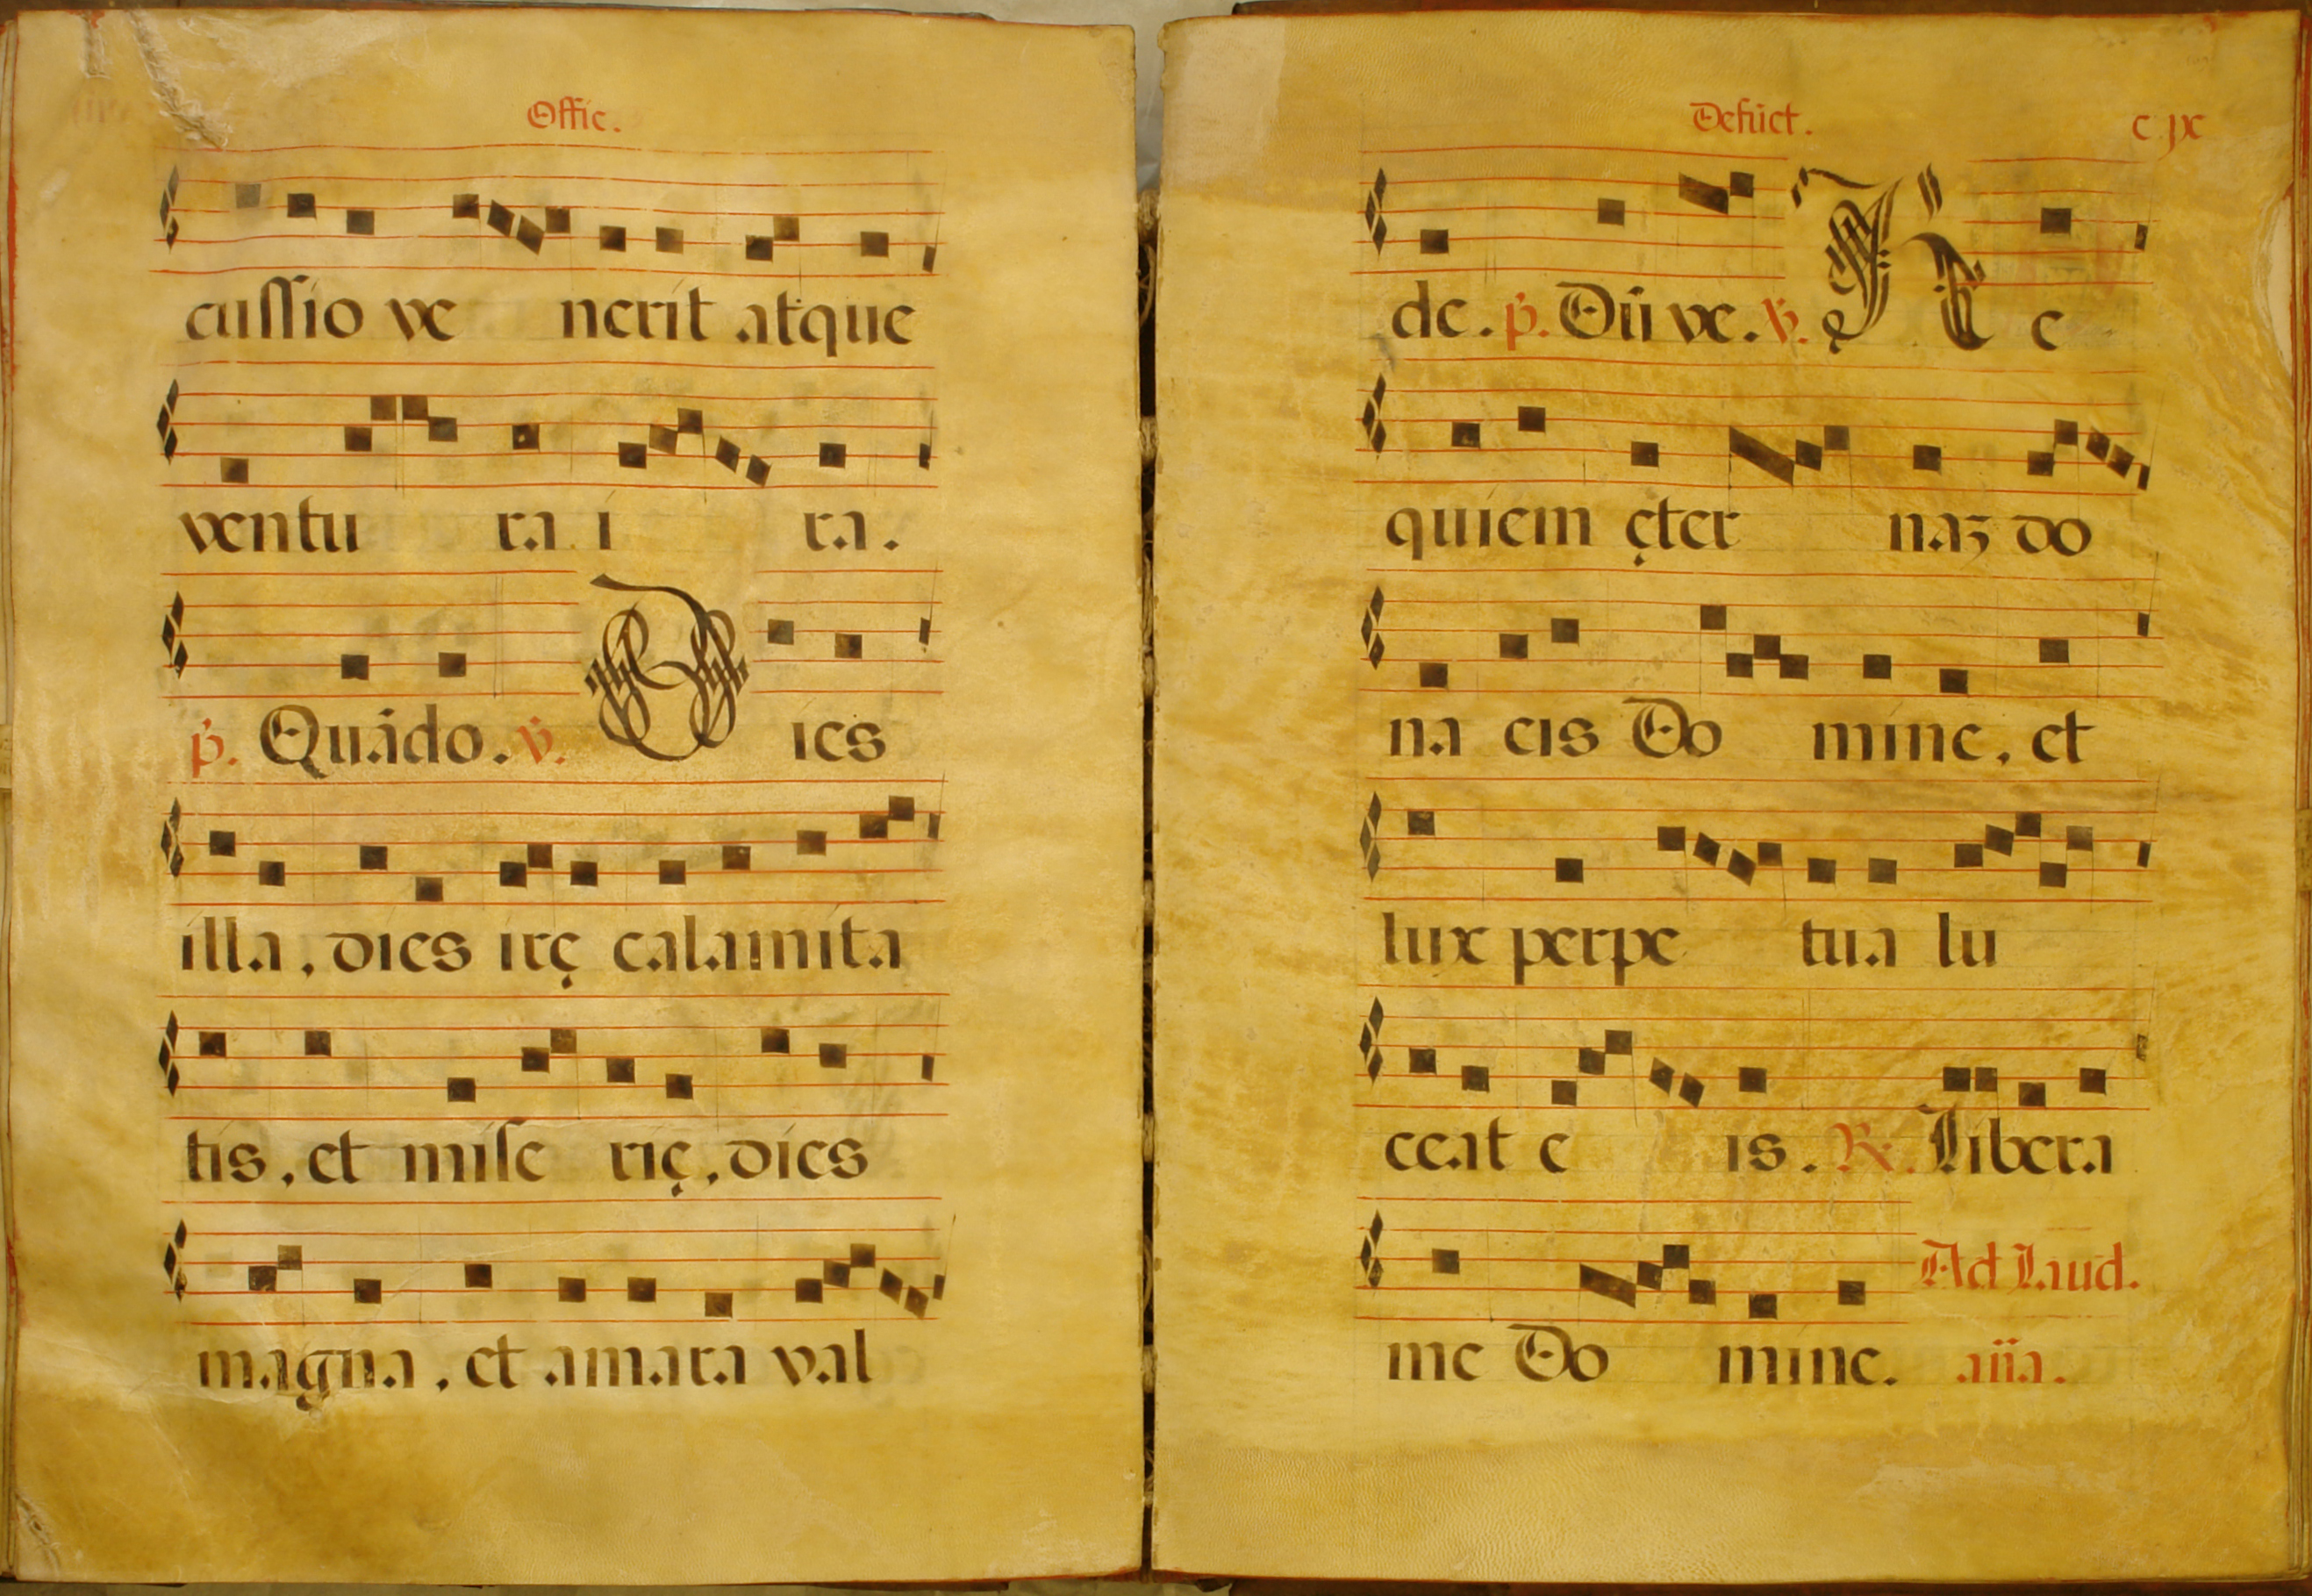 Offic.
cussio ve nerit atque
ventu ra i ra.
p. Quãdo. v. Dies
illa, dies irę calamita
tis, et mise rię, dies
magna, et amara val
Defũct. c ix
de. p. Dũ ve. v. Re
quiem ęter naʒ do
na eis Do mine, et
lux perpe tua lu
ceat e is. R. Libera
me Do mine. Ad Laud.
aña.